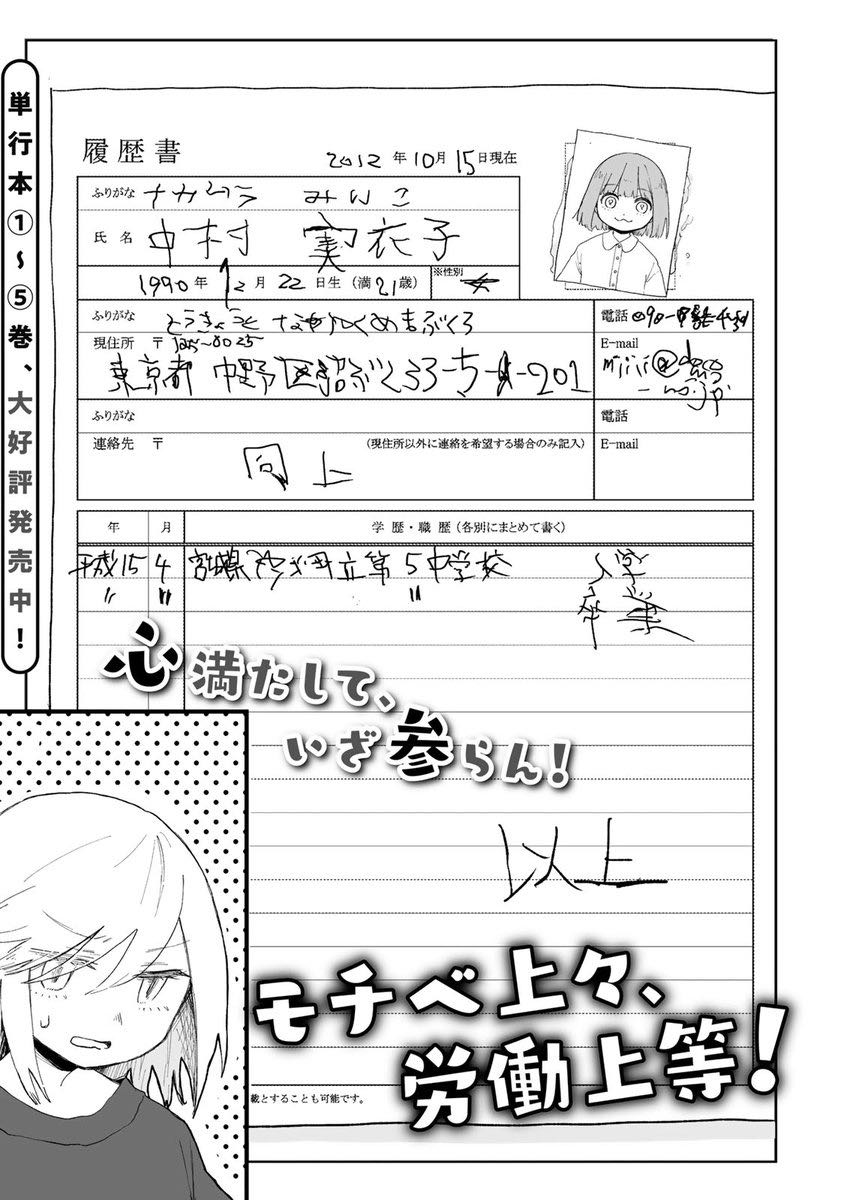 単行本①〜⑤巻、大好評発売中！
履歴書
2012年10月15日現在
ふりがな ナカムラ みいこ
氏名 中村 実衣子
1990年12月22日生(満21歳) ※性別
ふりがな とうきょうと なかのくぬまぶくろ
電話 090-
現住所 〒165-0025
E-mail
東京都 中野区沼ぶくろ3-5-1-201
ふりがな
電話
連絡先 〒 (現住所以外に連絡を希望する場合のみ記入)
E-mail
同上
年 月 学歴・職歴(各別にまとめて書く)
平成15 4 宮城県 立第5中学校 入学
〃 〃 〃 卒業
心満たして、
いざ参らん！
以上
モチベ上々、
労働上等！
載とすることも可能です。